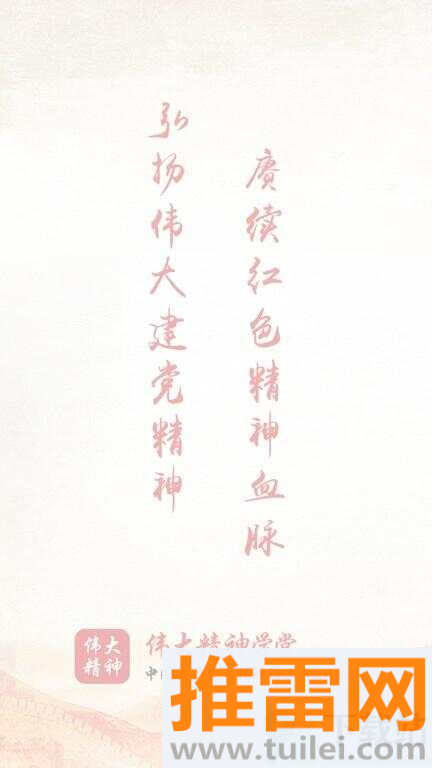 弘扬伟大建党精神
赓续红色精神血脉
伟大
精神
伟大精神学堂
中
推雷网
www.tuilei.com
下载